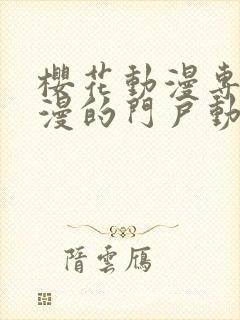 櫻花動漫專
漫的門戶動
隋雲雁